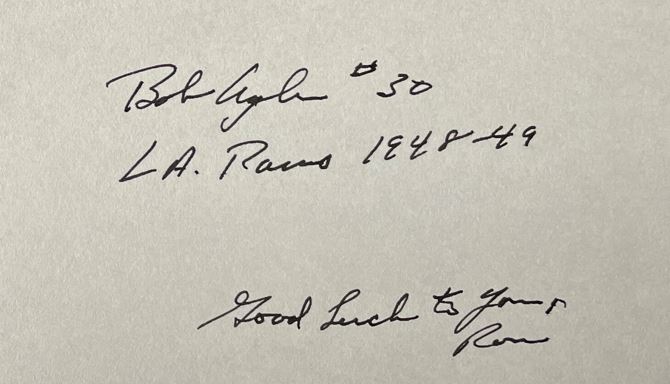 Bob Agler #30
L A. Rams 1948-49
Good Luck to You,
Ron